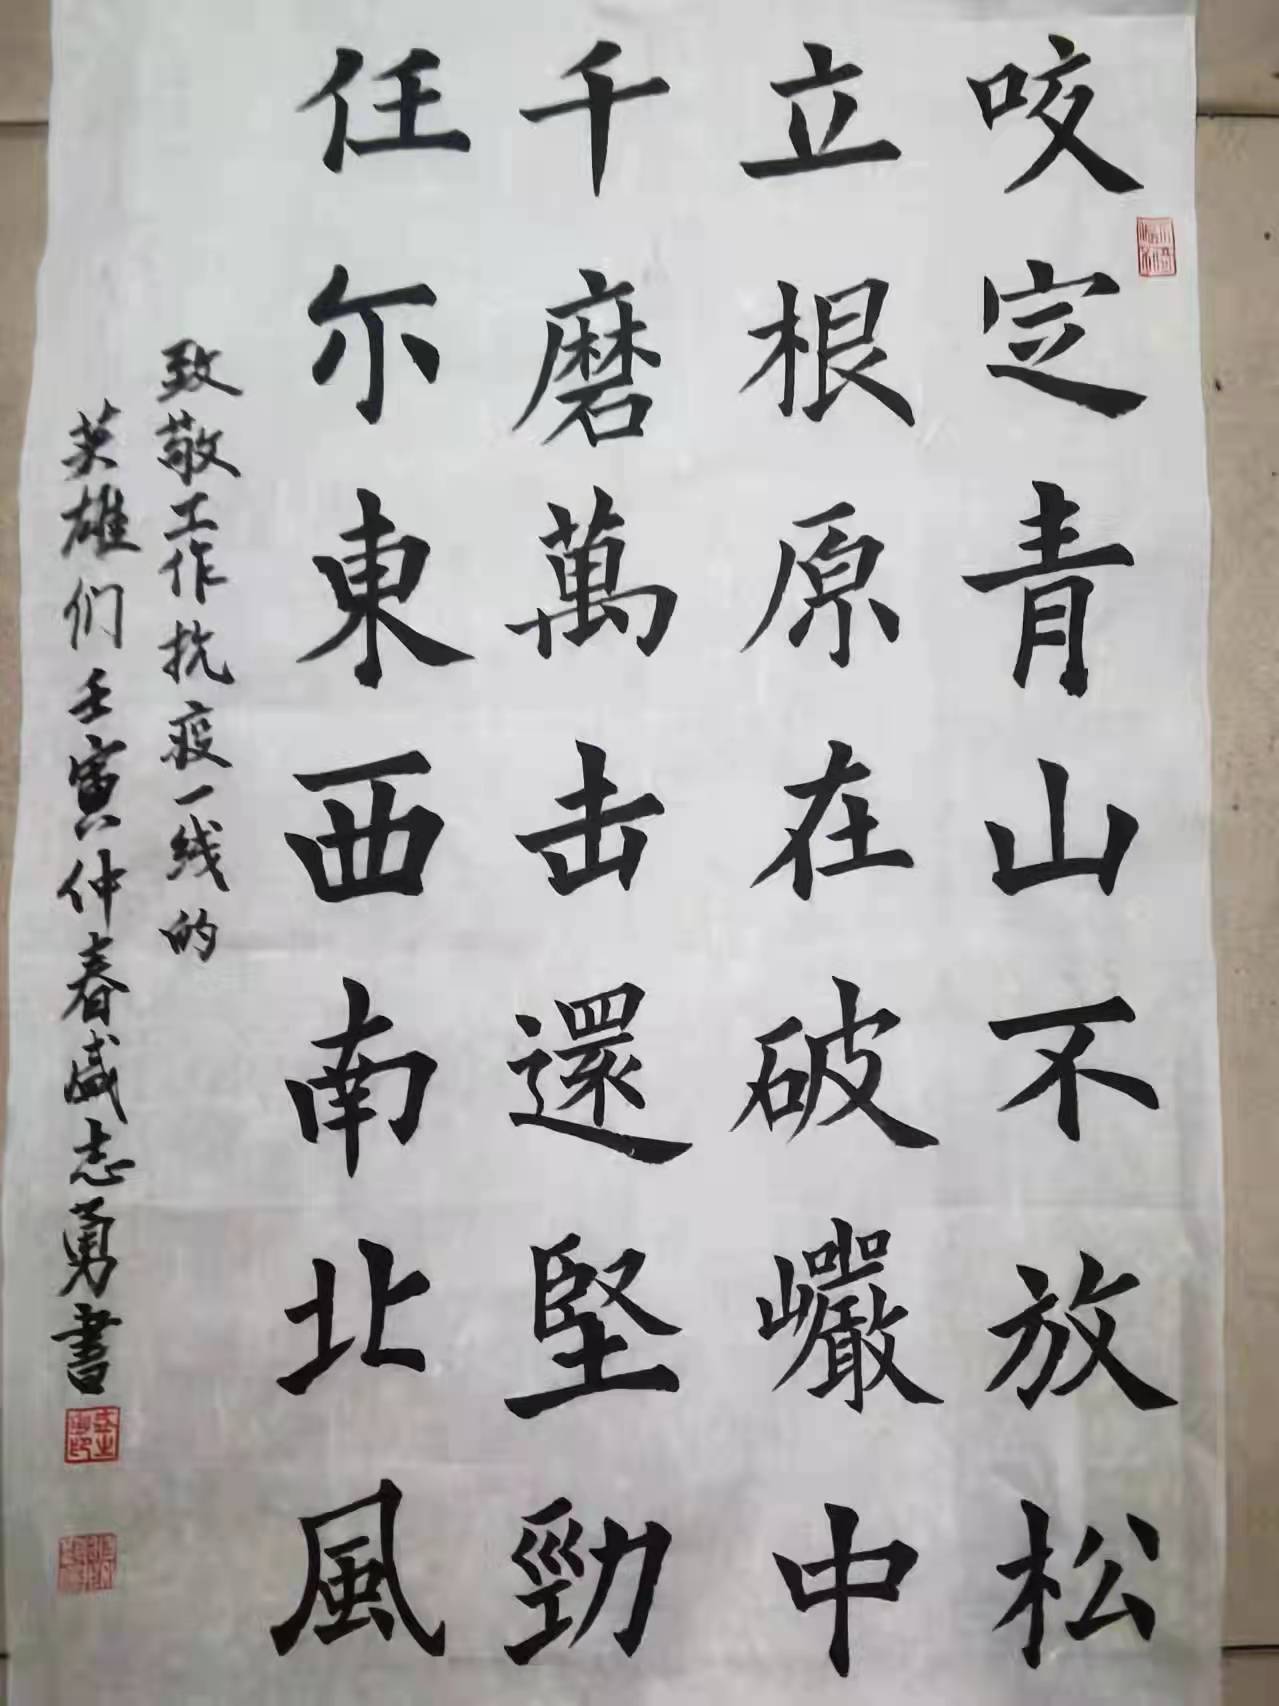 咬定青山不放松
立根原在破巗中
千磨萬击還堅勁
任尔東西南北風
致敬工作抗疫一线的
英雄们壬寅仲春盛志勇書